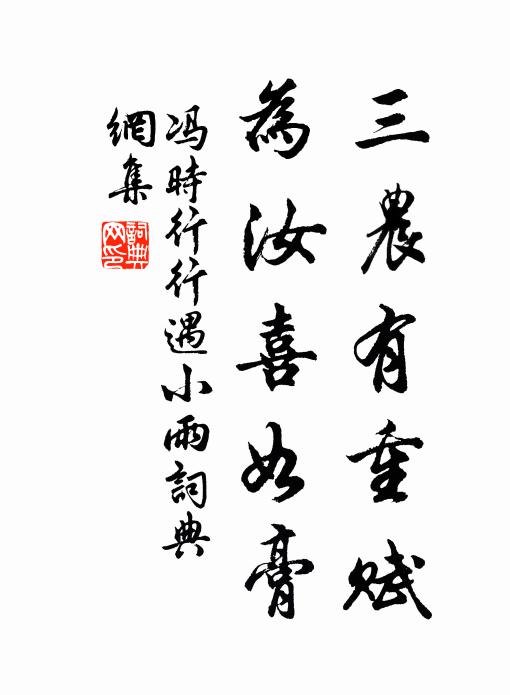 三農有重賦
為汝喜如膏
冯時行行遇小雨詞典
網集
詞典網印